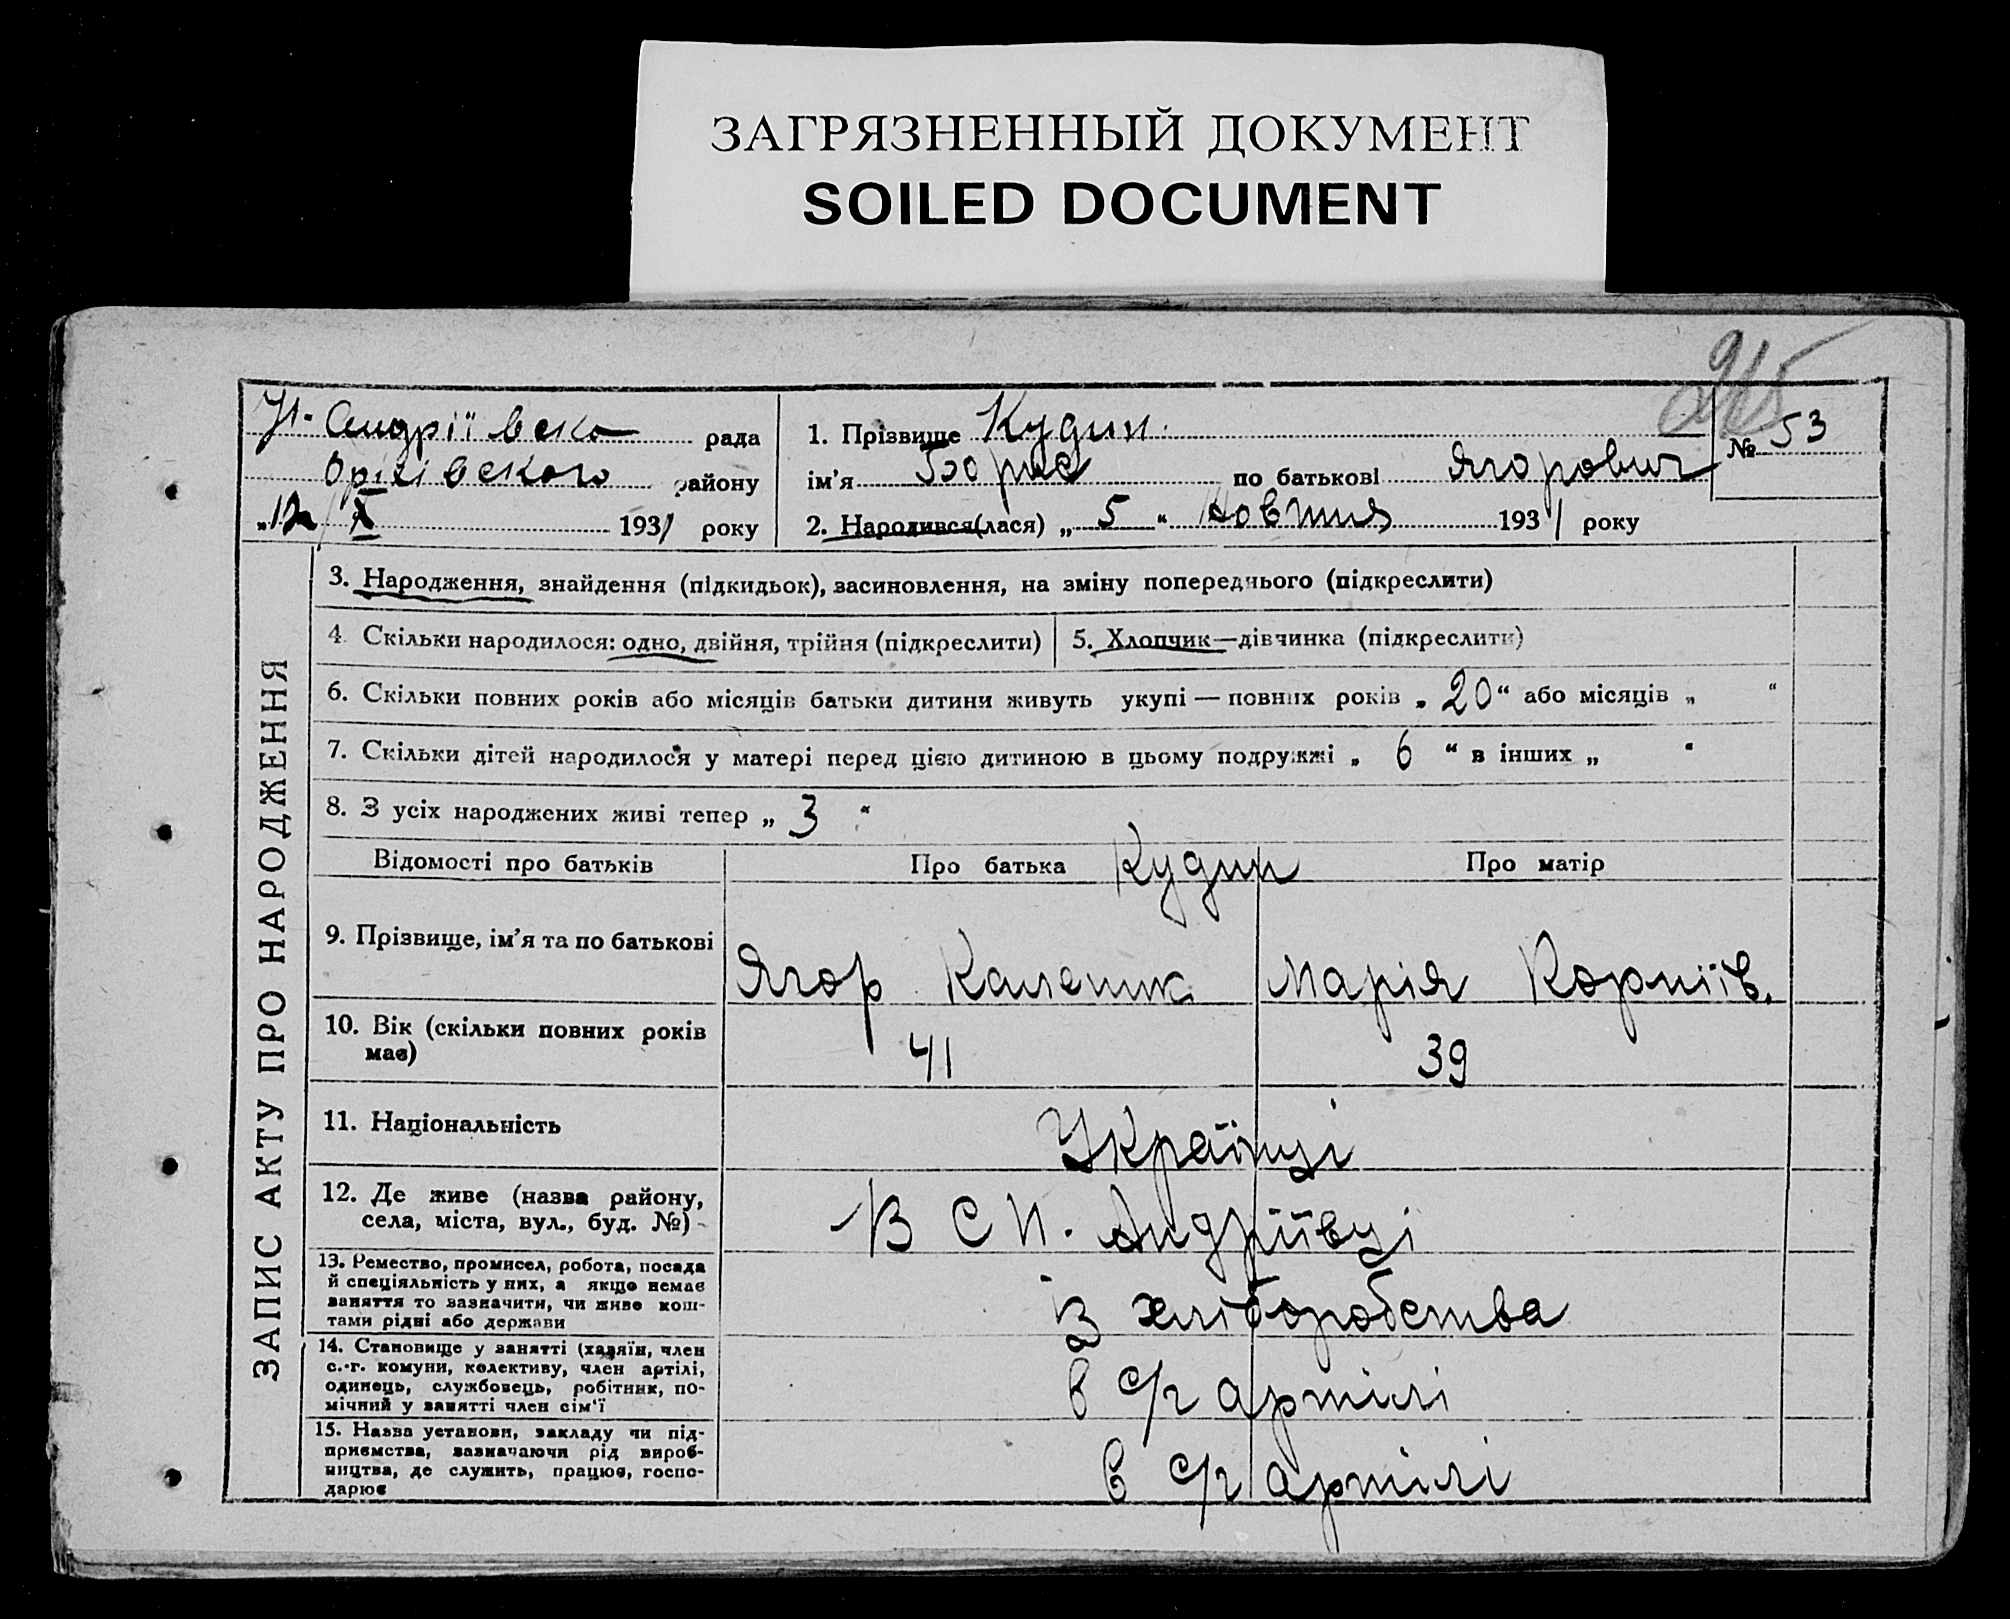 ЗАГРЯЗНЕННЫЙ ДОКУМЕНТ
SOILED DOCUMENT
Н. Андріївска рада
Орілівского району
„12/X 1931 року
1. Прізвище Кудин
ім’я Борис по батькові Ягорович
2. Народився(лася) „ 5 “ Жовтня 1931 року
№ 53
ЗАПИС АКТУ ПРО НАРОДЖЕННЯ
3. Народження, знайдення (підкидьок), засиновлення, на зміну попереднього (підкреслити)
4. Скільки народилося: одно, двійня, трійня (підкреслити)
5. Хлопчик—дівчинка (підкреслити)
6. Скільки повних років або місяців батьки дитини живуть укупі — повних років „ 20 “ або місяців „ “
7. Скільки дітей народилося у матері перед цією дитиною в цьому подружжі „ 6 “ в інших „ “
8. З усіх народжених живі тепер „ 3 “
Відомості про батьків
Про батька Кудин Про матір
9. Прізвище, ім’я та по батькові
Ягор Каленик Марія Корніїв.
10. Вік (скільки повних років
має)
41 39
11. Національність
Українці
12. Де живе (назва району,
села, міста, вул., буд. №)
В С Н. Андріївці
13. Ремество, промисел, робота, посада
й спеціяльність у них, а якщо немає
заняття то зазначити, чи живе кош-
тами рідні або держави
із хліборобства
14. Становище у занятті (хазяїн, член
с.-г. комуни, колективу, член артілі,
одинець, службовець, робітник, по-
мічний у занятті член сім’ї
в с/г артілі
15. Назва установи, закладу чи під-
приємства, зазначаючи рід вироб-
ництва, де служить, працює, госпо-
дарює
в с/г артілі